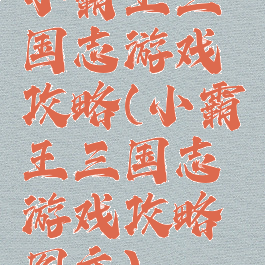 小霸王三
国志游戏
攻略(小霸
王三国志
游戏攻略